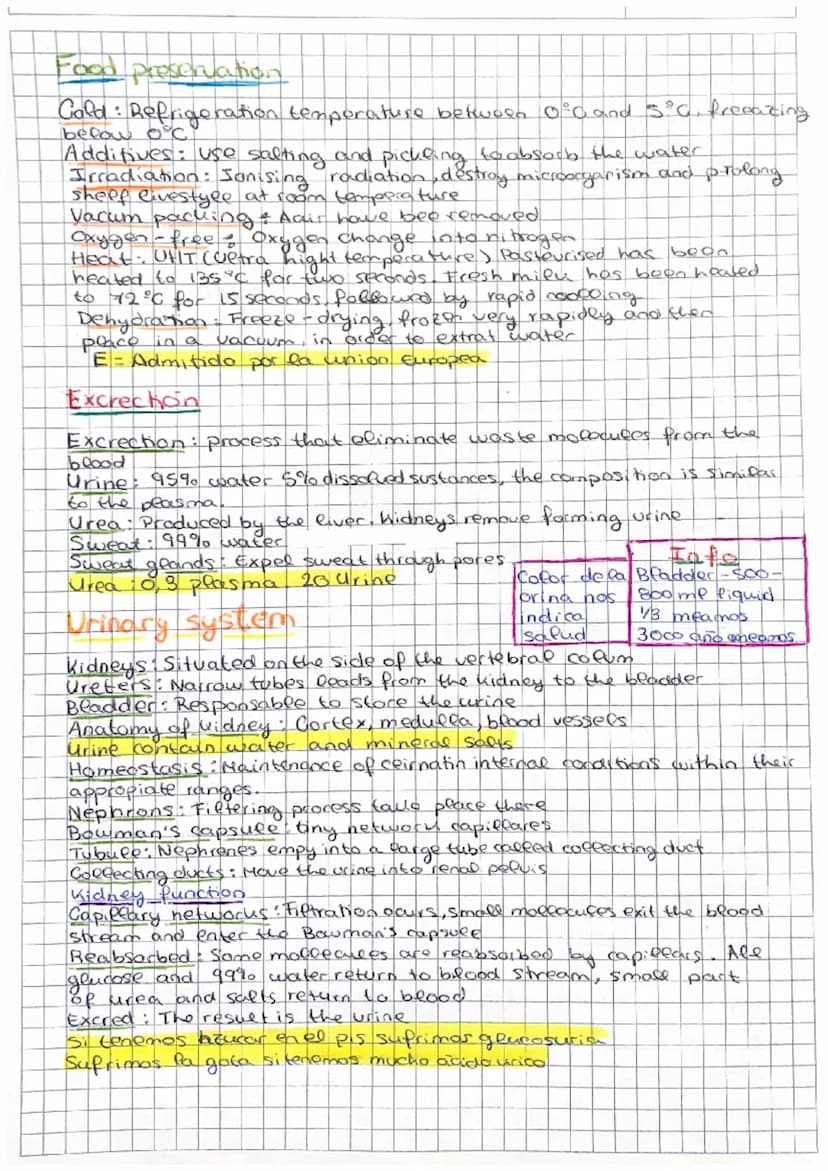 Food preservation
Cold: Refrigeration temperature between 0°C and 5°C, freeazing
below 0°C
Additives: use salting and pickling to absorb the water
Irradiation: Ionising radiation, destroy microorganism and prolong
shelf livestyle at room temperature
Vacum packing: Aair have bee removed
Oxygen-free: Oxygen change into nitrogen
Heat: UHT (Uetra hight temperature) Pasteurised has been
heated to 135°C for two seconds. Fresh milk has been heated
to 72°C for 15 seconds, followed by rapid cooling
Dehydration: Freeze-drying, frozen very rapidly and then
place in a vacuum, in order to extrat water
E = Admitido por la union Europea
Excrection
Excrection: process that eliminate waste molocules from the
blood
Urine: 95% water 5% dissolved sustances, the composition is similar
to the plasma.
Urea: Produced by the liver. Kidneys remove forming urine
Sweat: 99% water
Sweat glands: Expel sweat through pores
Urea: 0,3 plasma 20 Urine
Color de la
orina nos
indica
salud
Info
Bladder - 500-
800 ml liquid
1/3 meamos
3000 año meamos
Urinary system
Kidneys: Situated on the side of the vertebral colum
Ureters: Narrow tubes leads from the kidney to the bladder
Bladder: Responsable to store the urine
Anatomy of kidney: Cortex, medulla, blood vessels
Urine contain water and mineral salts
Homeostasis: Maintendace of internal conditions within their
appropiate ranges.
Nephrons: Filtering process take place there
Bowman's capsule: tiny network capillares
Tubule: Nephrones empy into a large tube called collecting duct
Collecting ducts: Move the urine into renal pelvis
Kidney function
Capillary networks: Filtration ocurs, small mollocules exit the blood
stream and enter the Bowman's capsule
Reabsorbed: Some mollecules are reabsorbed by capillars. All
glucose and 99% water return to blood stream, small part
of urea and salts return to blood
Excred: The result is the urine
Si tenemos azucar en el pis sufrimos glucosuria
Sufrimos la gota si tenemos mucho acido urico